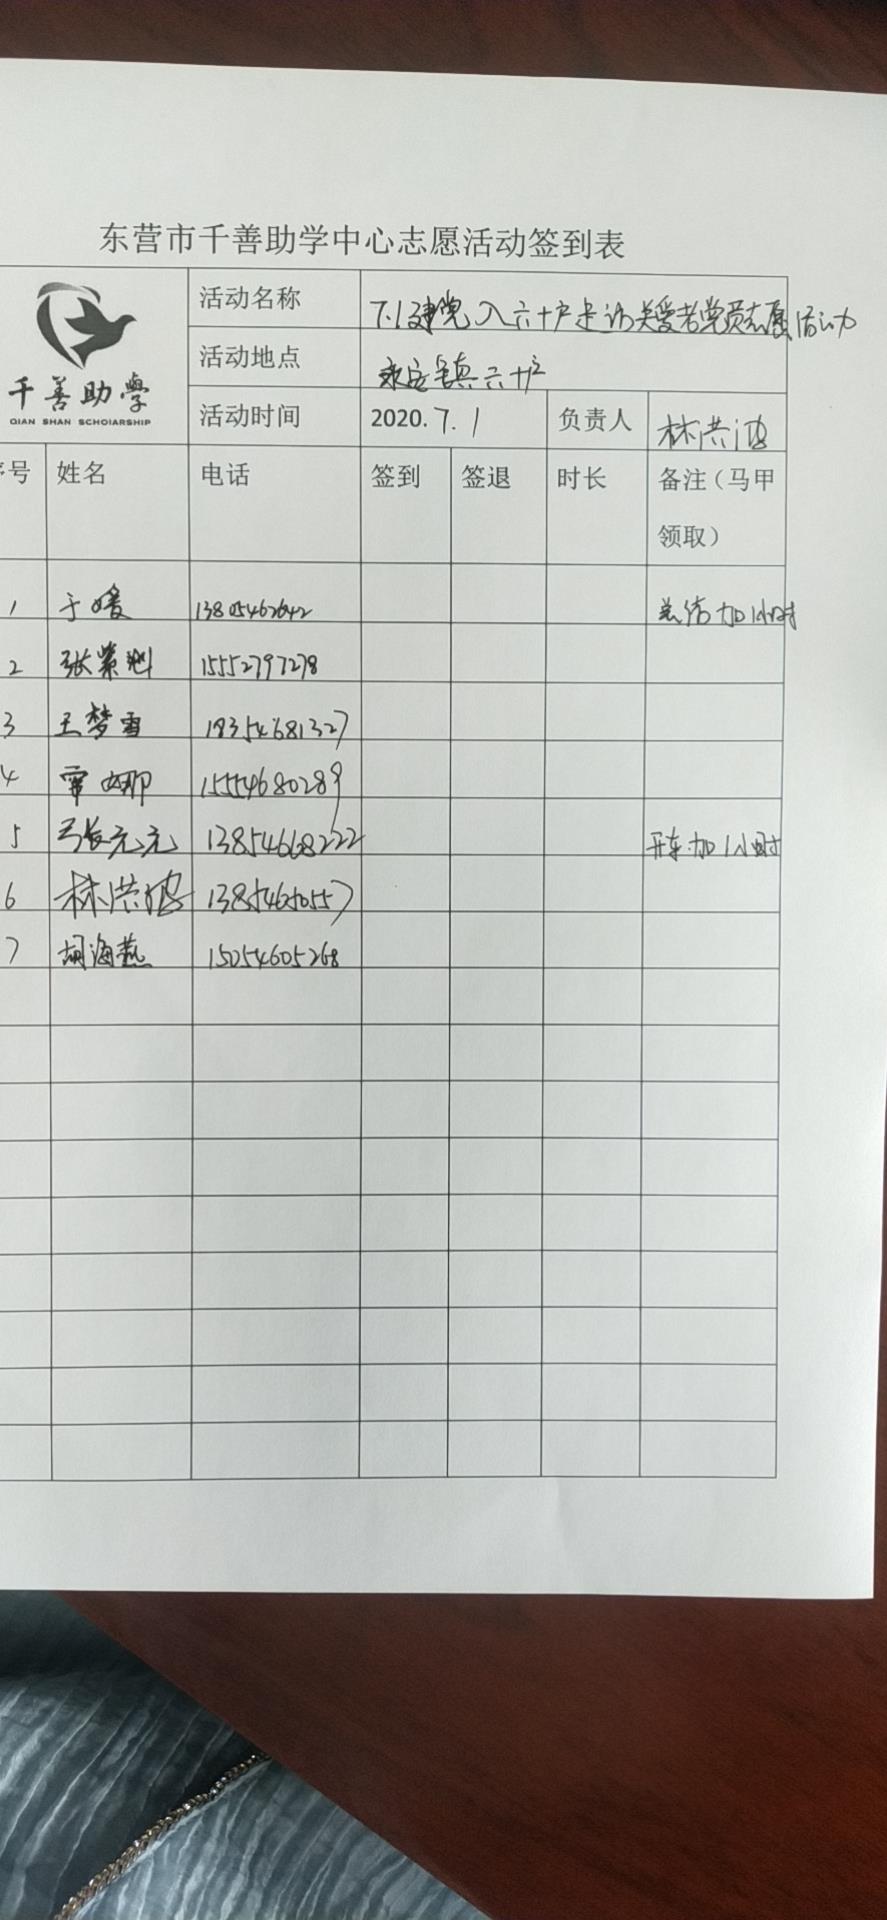 东营市千善助学中心志愿活动签到表
千善助學
QIAN SHAN SCHOIARSHIP
活动名称 7.1建党入六十户走访关爱老党员志愿活动
活动地点 永安镇六十户
活动时间 2020.7.1 负责人 林洪波
序号 姓名 电话 签到 签退 时长 备注（马甲
领取）
1 于媛 13805462642 总结加1小时
2 张紫 15552797278
3 王梦雪 18354681327
4 覃娜 15554680289
5 张元元 13854668222 开车加1小时
6 林洪波 13854650557
7 胡海燕 15054605268